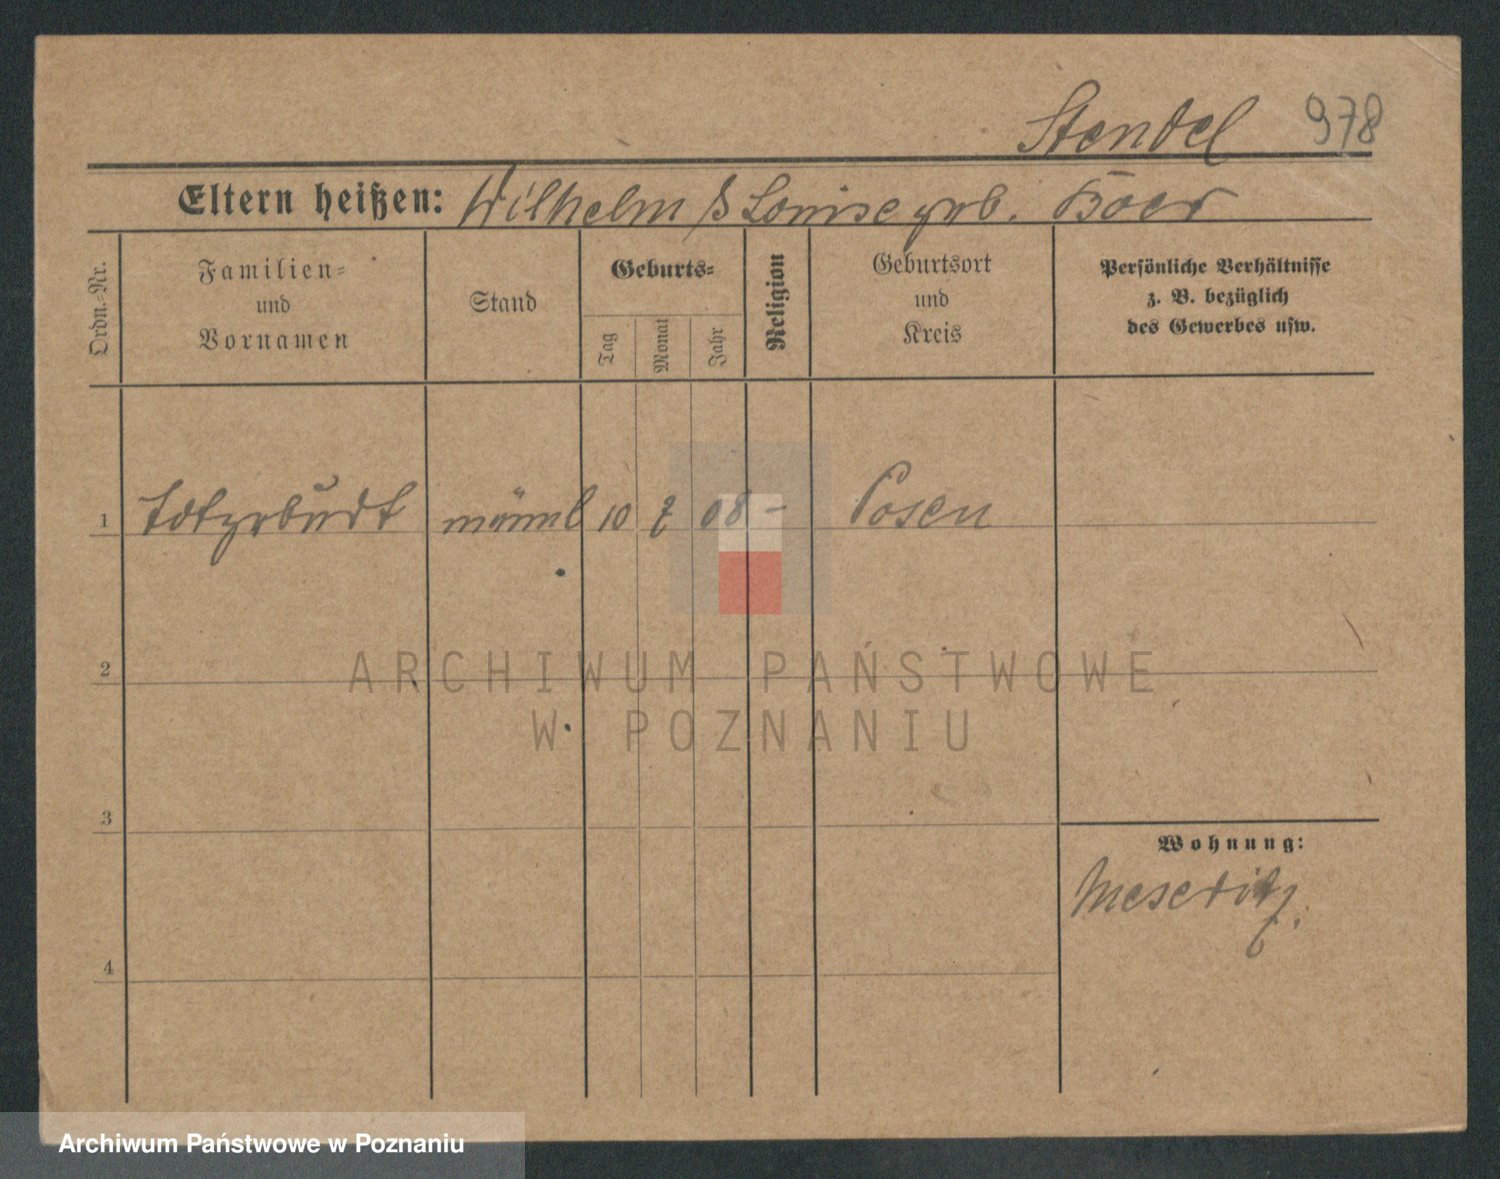 Stendel 978
Eltern heißen: Wilhelm & Louise geb. Böer
Ordn.-Nr.
Familien-
und
Vornamen
Stand
Geburts-
Tag
Monat
Jahr
Religion
Geburtsort
und
Kreis
Persönliche Verhältnisse
z. B. bezüglich
des Gewerbes usw.
1 Totgeburt männl 10 2 08 - Posen
ARCHIWUM PAŃSTWOWE
W POZNANIU
2
3
Wohnung:
Meseritz.
4
Archiwum Państwowe w Poznaniu